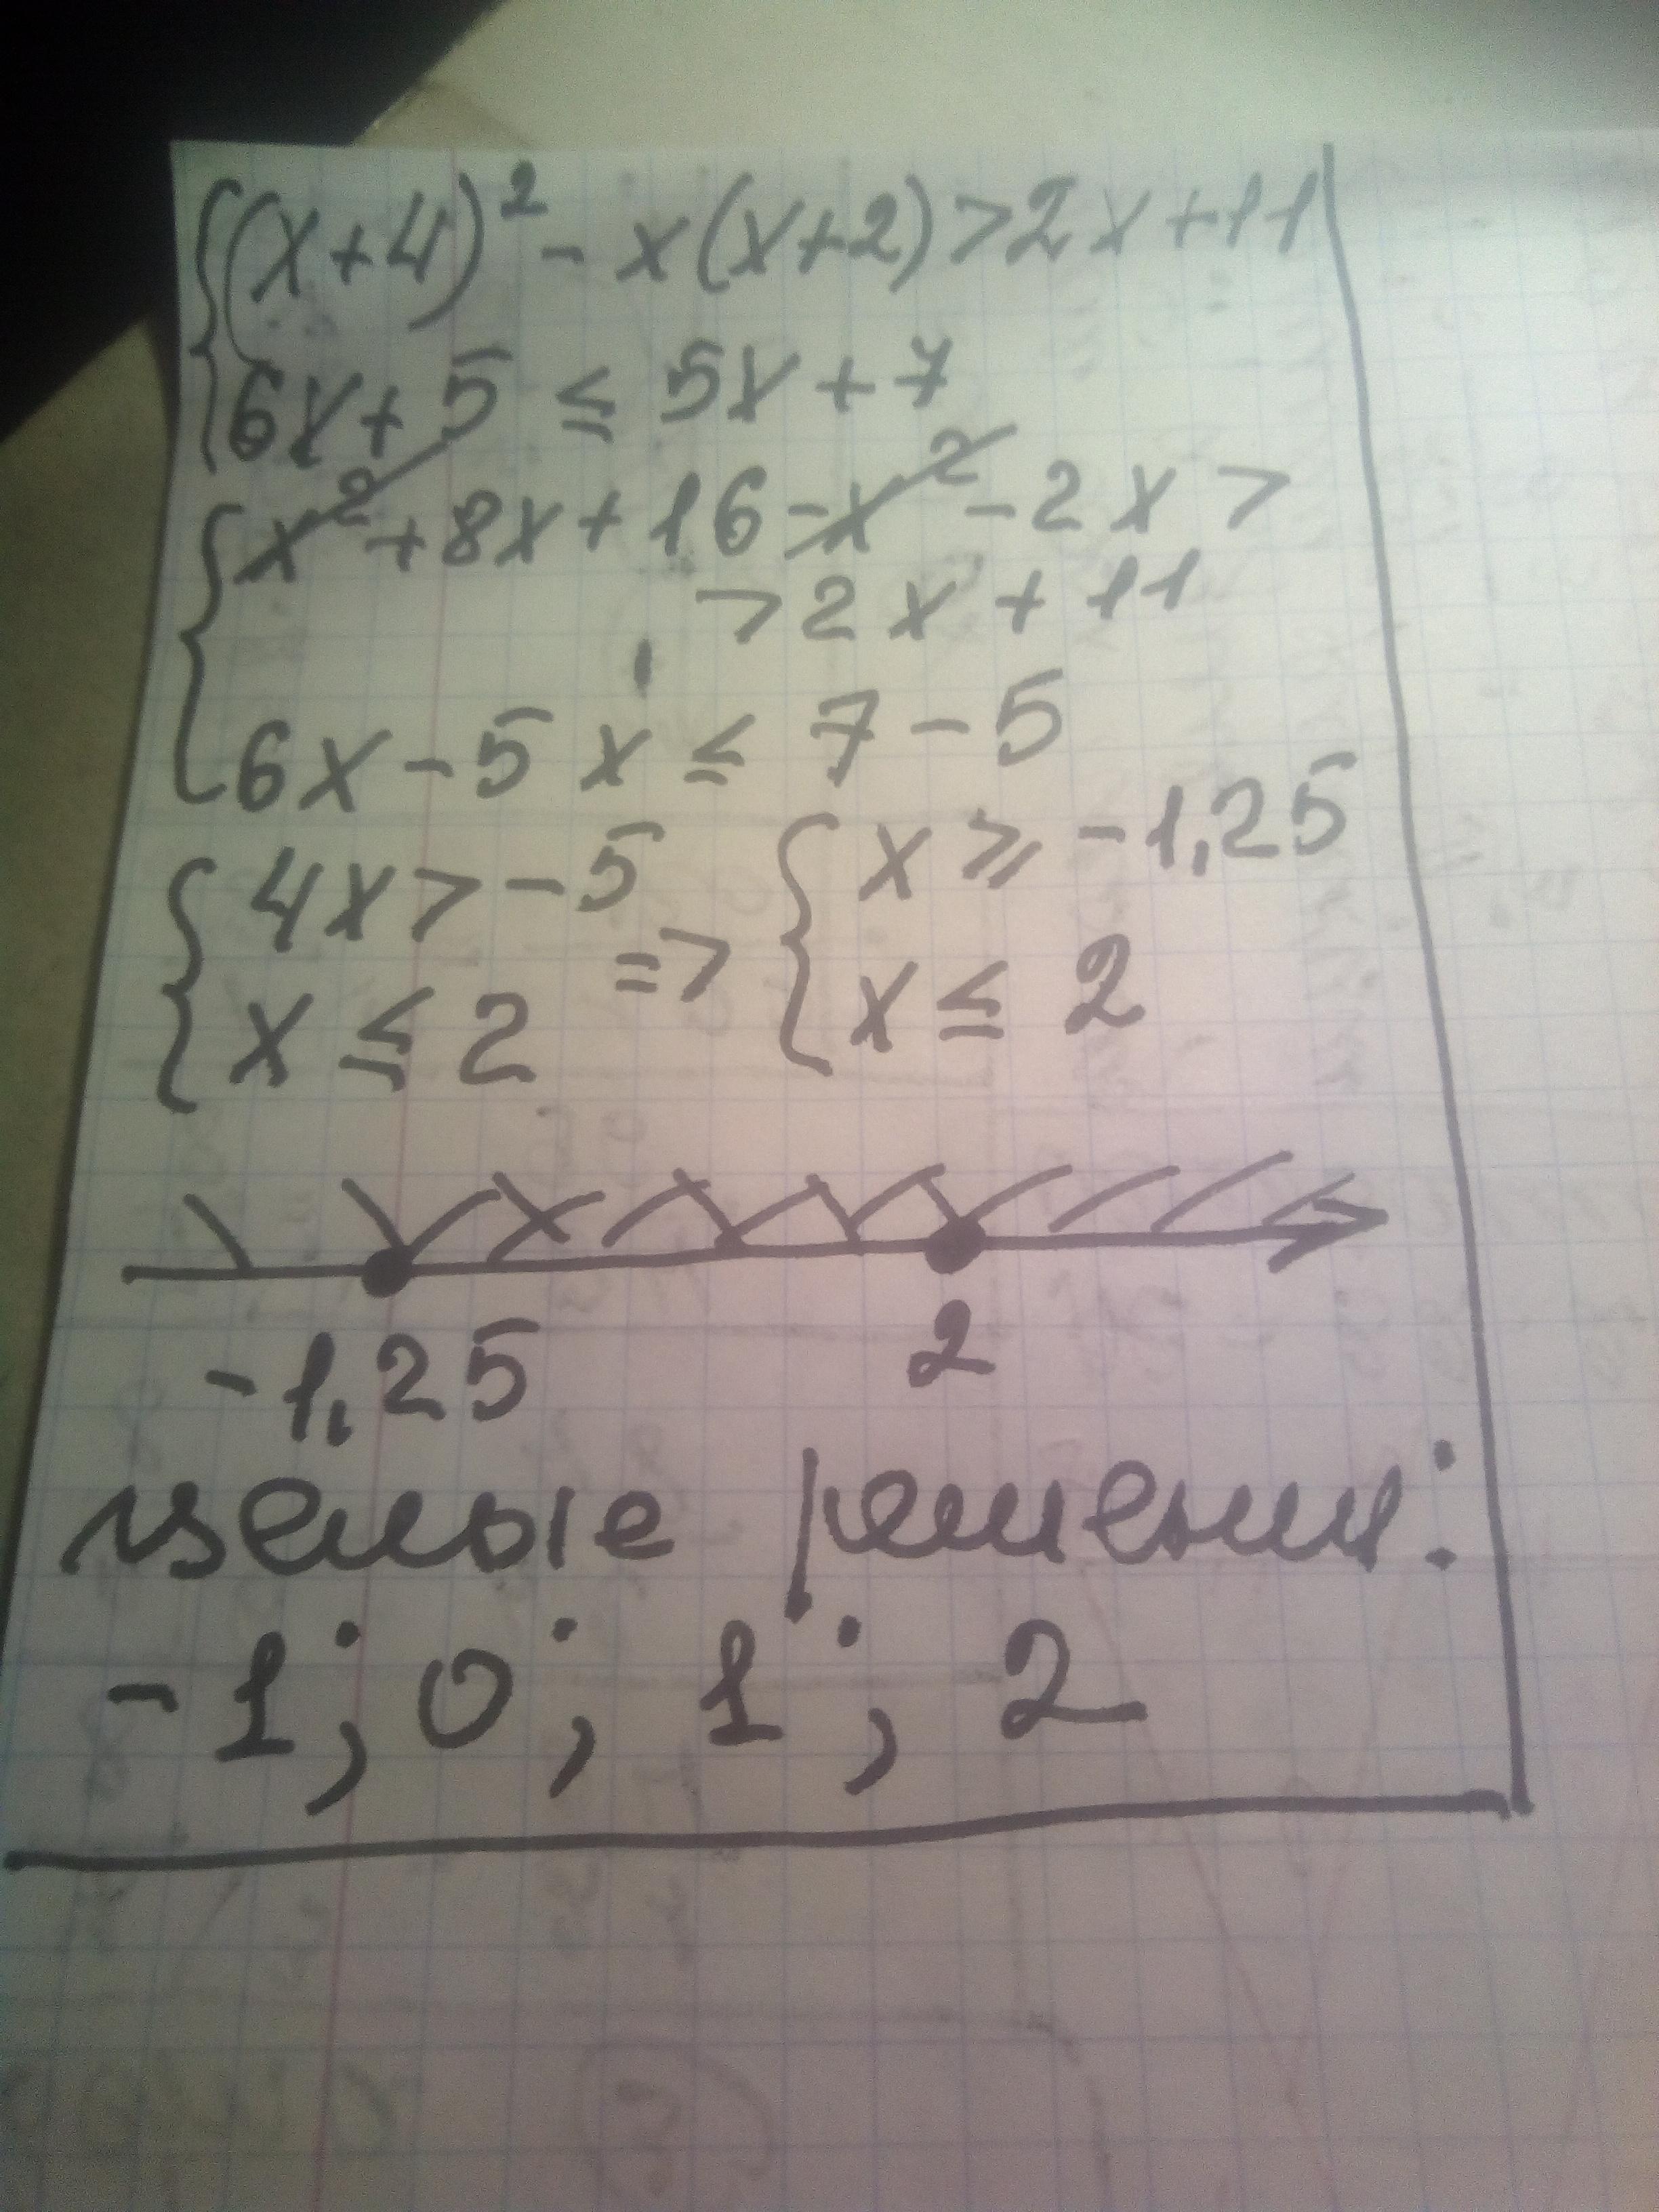 {(x+4)² - x(x+2) > 2x + 11
6x + 5 ≤ 5x + 7
{x² + 8x + 16 - x² - 2x >
> 2x + 11
6x - 5x ≤ 7 - 5
{4x > -5 => {x ⩾ -1,25
x ≤ 2 x ≤ 2
-1,25 2
целые решения:
-1; 0; 1; 2